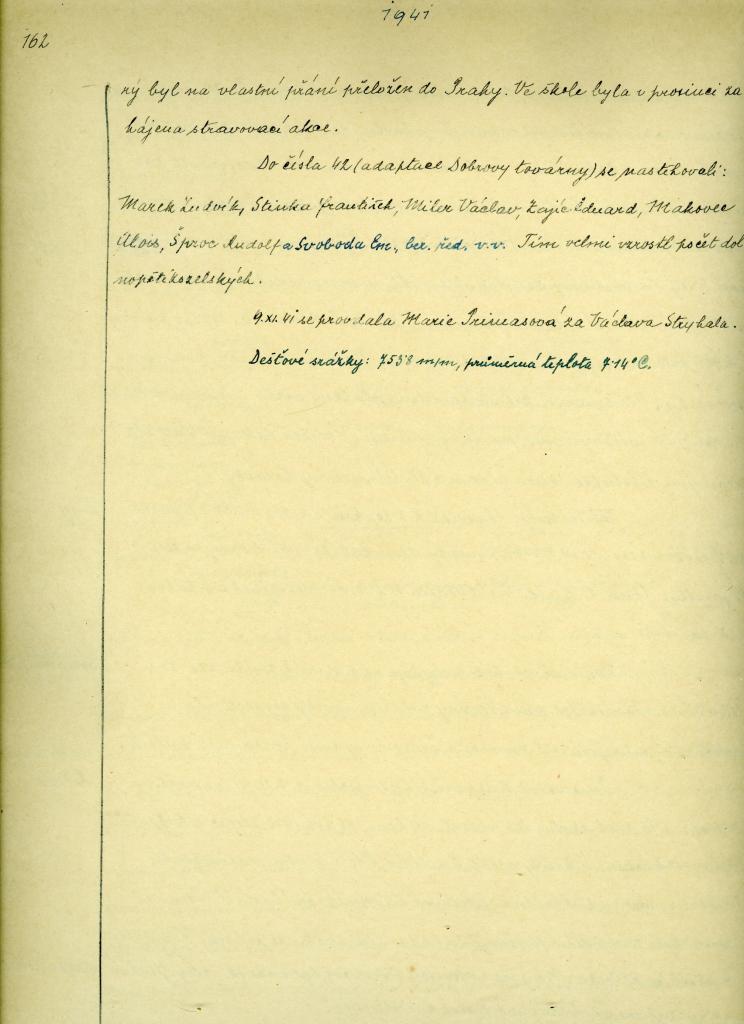 1941
162
rý byl na vlastní přání přeložen do Prahy. Ve škole byla v prosinci za
hájena stravovací akce.
Do čísla 42 (adaptace Dobrovy továrny) se nastěhovali:
Marek Ludvík, Stinka František, Miler Václav, Zajíc Eduard, Makovec
Alois, Šproc Rudolf a Svoboda Em., ber. řed. v.v. Tím velmi vzrostl počet dol
nopětikozelských.
9.XI. 41 se provdala Marie Primasová za Václava Stryhala.
Dešťové srážky: 753·8 m/m, průměrná teplota 7·14° C.